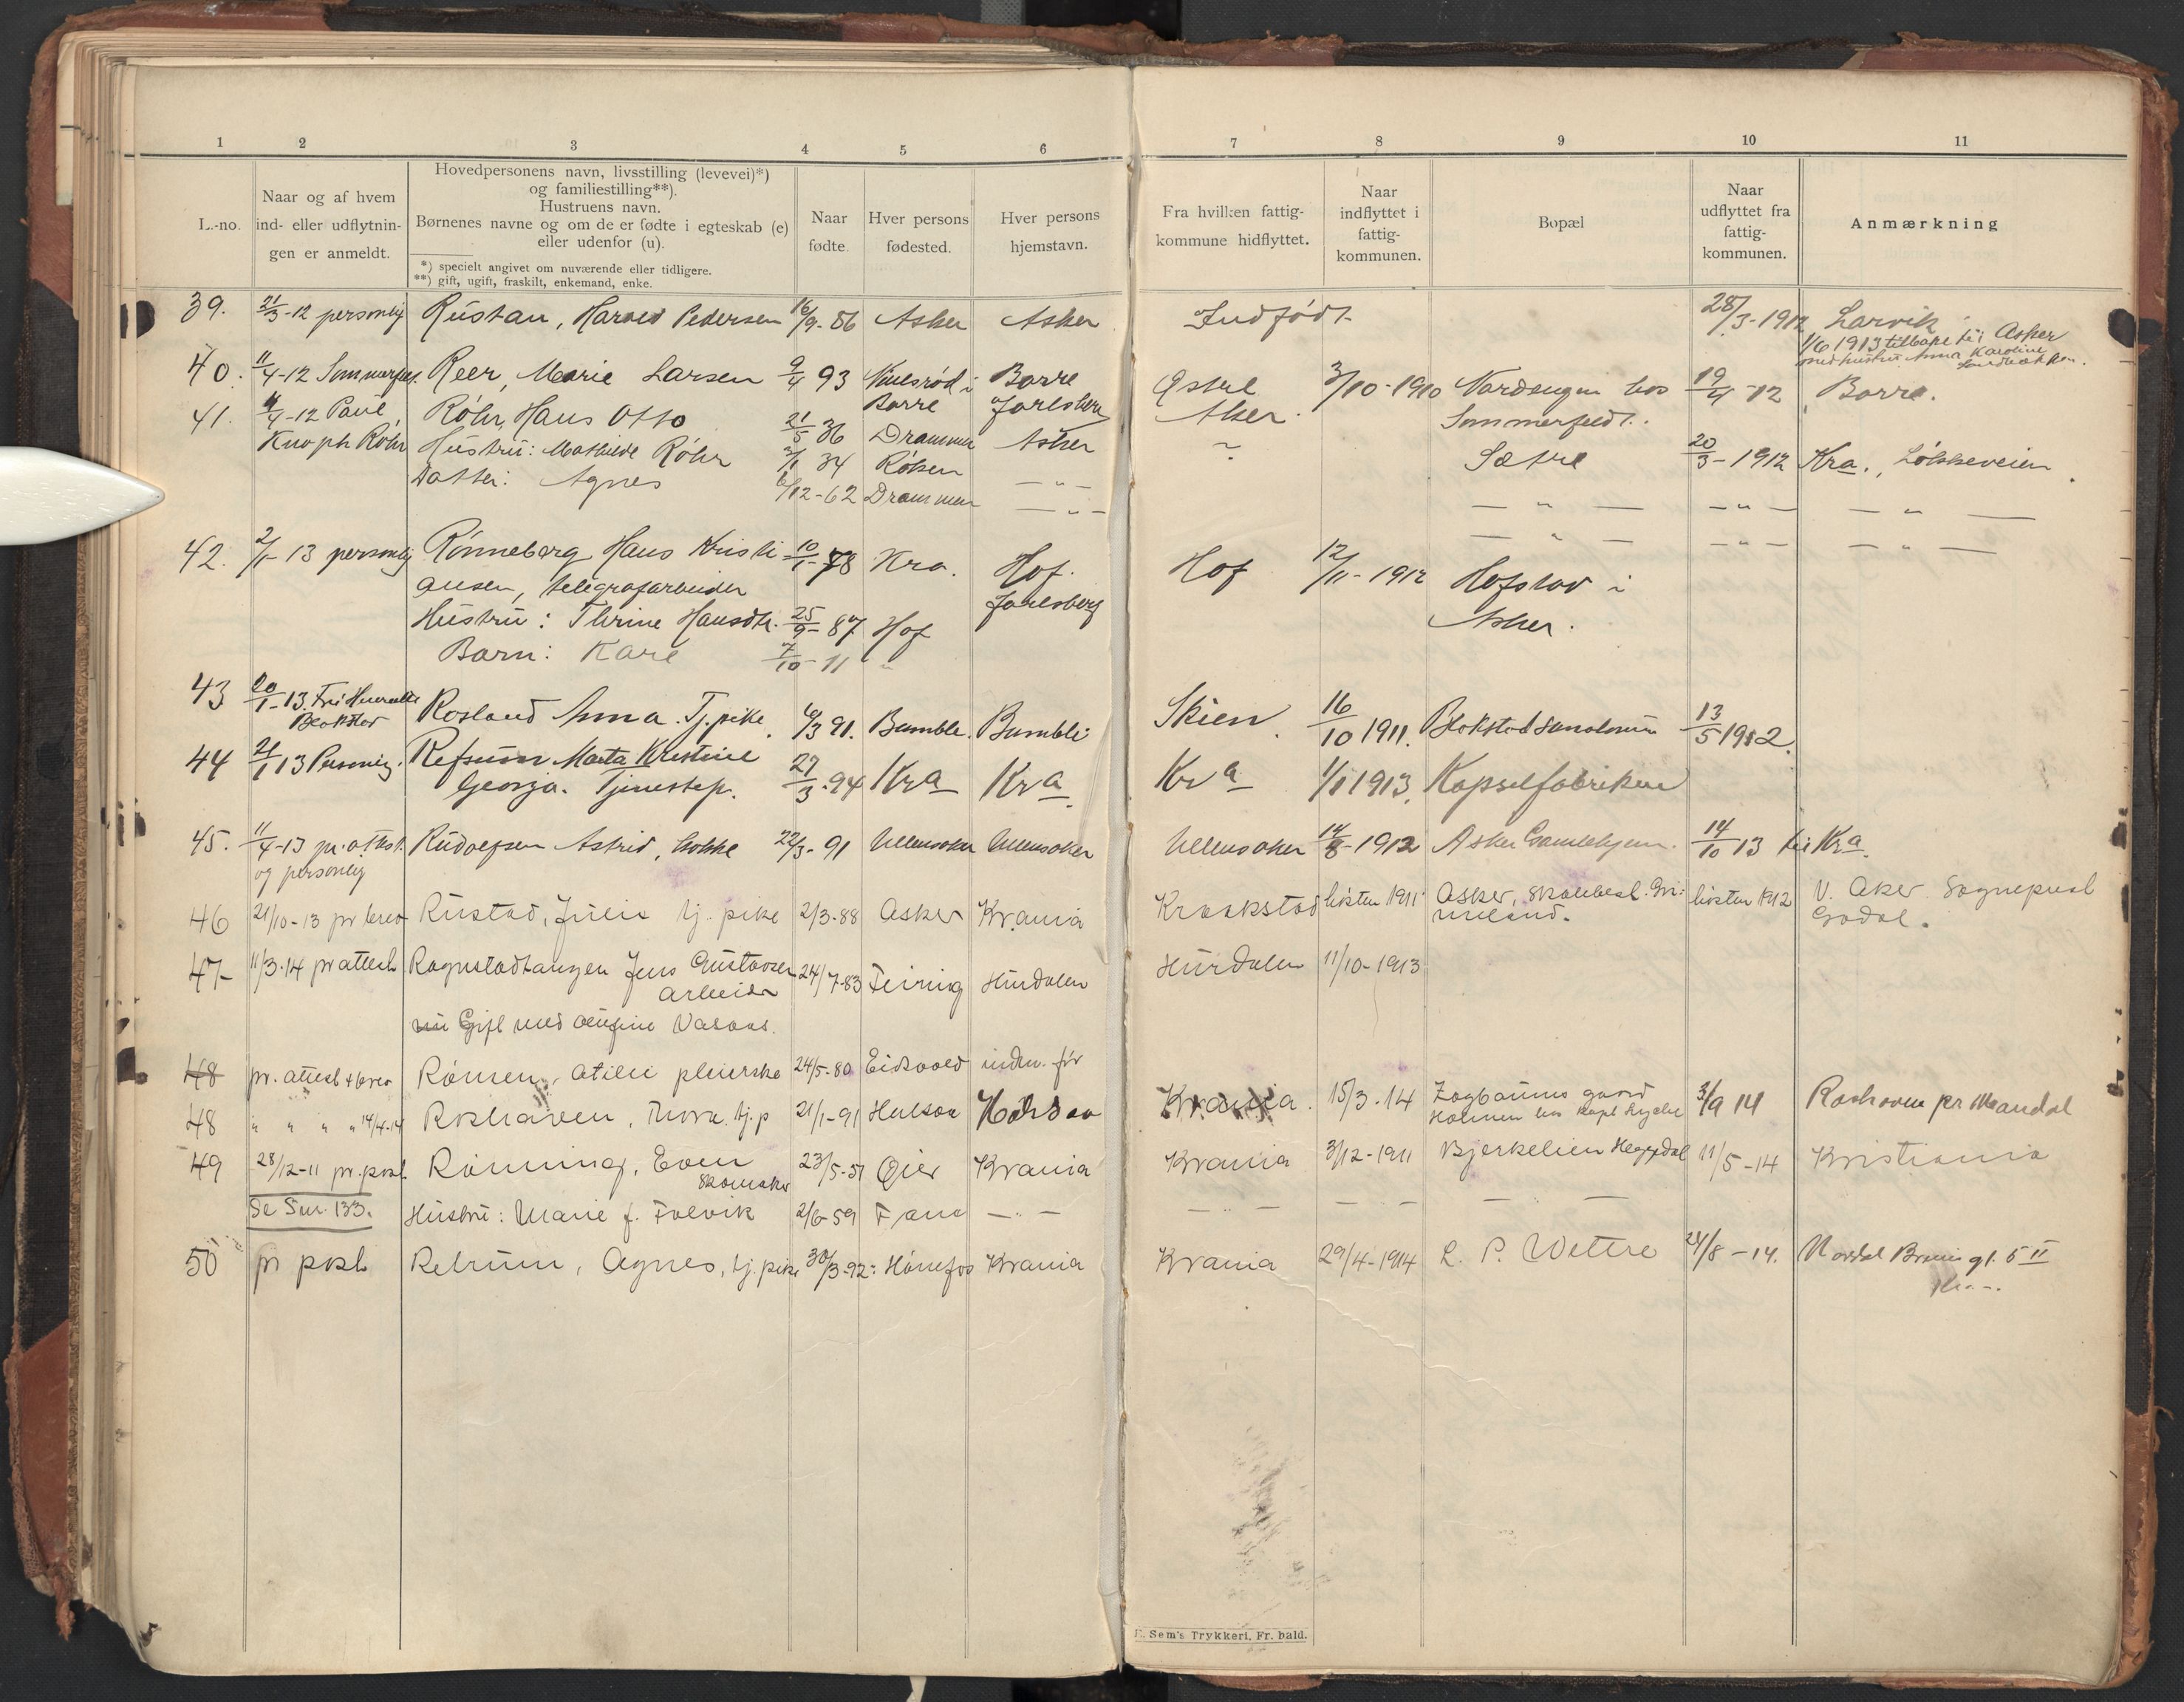 1 2 3 4 5 6 7 8 9 10 11
L.-no.
Naar og af hvem
ind- eller udflytnin-
gen er anmeldt.
Hovedpersonens navn, livsstilling (levevei)*)
og familiestilling**).
Hustruens navn.
Børnenes navne og om de er fødte i egteskab (e)
eller udenfor (u).
*) specielt angivet om nuværende eller tidligere.
**) gift, ugift, fraskilt, enkemand, enke.
Naar
fødte.
Hver persons
fødested.
Hver persons
hjemstavn.
Fra hvilken fattig-
kommune hidflyttet.
Naar
indflyttet i
fattig-
kommunen.
Bopæl
Naar
udflyttet fra
fattig-
kommunen.
Anmærkning
39. 21/3-12 personlig Rustan, Harald Pedersen 16/9-86 Asker Asker Indfødt 28/3-1912 Larvik
1/6 1913 tilbake til Asker
med hustru Anna Karoline
40. 11/4-12 Sommerfeldt. Reer, Marie Larsen 9/4 93 i Borre Østre 3/10-1910 hos 19/4-12 Borre.
Borre Jarlsberg Aker. Sommerfeldt.
41. 11/4-12 Paul Röhr, Hans Otto 21/5 36 Drammen Asker ~ Sætre 20/3-1912 Kra., Løkkeveien
Knoph Röhr Hustru: Mathilde Röhr 2/1 34 Røken — " — — " — — " — — " —
Datter: Agnes 6/12-62 Drammen — " — — " — — " — — " —
42. 2/1-13 personlig Rønneberg Hans Kristi 10/1-78 Kra. Hof. Hof 12/11-1912 Hofstad i
ansen, telegrafarbeider Jarlsberg Asker.
Hustru: Thrine Hansdtr. 25/9-87 Hof
Barn: Kare 7/10-11 "
43 20/1-13. Fru Rosland Anna. Tj.pike. 6/3 91. Bamble. Bamble Skien. 16/10 1911. Blokstad 13/5 1912.
Blokstad
44 21/1 13 Personlig. Refsum Marta Kristine
Georga. Tjenestep. 27/3-94 Kra Kra. Kra 1/1 1913. Kapselfabriken
45. 11/4-13 pr. attest. Rudolfsen Astrid, kokke 22/3-91 Ullensaker Ullensaker Ullensaker 14/8-1912 Asker Gamlehjem. 14/10 13 til Kra.
og personlig
46 21/10-13 pr brev Rustad, Julie tj. pike 2/3-88 Asker Kr.ania Kraakstad høsten 1911 Asker, skolebest. Gri- høsten 1912 V. Aker Sogneprest
Godal.
47- 11/3-14 pr attest Ragnstadtangen Jens Gustavsen 24/7-83 Feiring Hurdalen Hurdalen 11/10-1913
arbeider
Gift med
48 pr. attest + brev Rønsen, Otilie pleierske 24/5-80 Eidsvold indm. før
48 " " " " 14/4-14 Roshaven, Thora. tj.p 21/1-91 Halsaa Halsaa Krania. 15/3-14 Zagbaums gaard 3/9 14 Roshaven pr Mandal
Holmen hos
49 28/12-11 pr. post. Rønning, Even 23/5-51 Øier Krania Krania 3/12-1911 Bjerkelien Heggedal 11/5-14 Kristiania
Skomaker
Se 133. Hustru: Marie f. Folvik 2/6-59 Fana — " — — " — — — — " —
50 pr post Retrum, Agnes, tj.pike 30/3-92: Hønefos Krania Krania 29/4-1914 L. P. Wettre 24/8-14. gt. 5 II
Kra.
E. Sem's Trykkeri, Fr. hald.